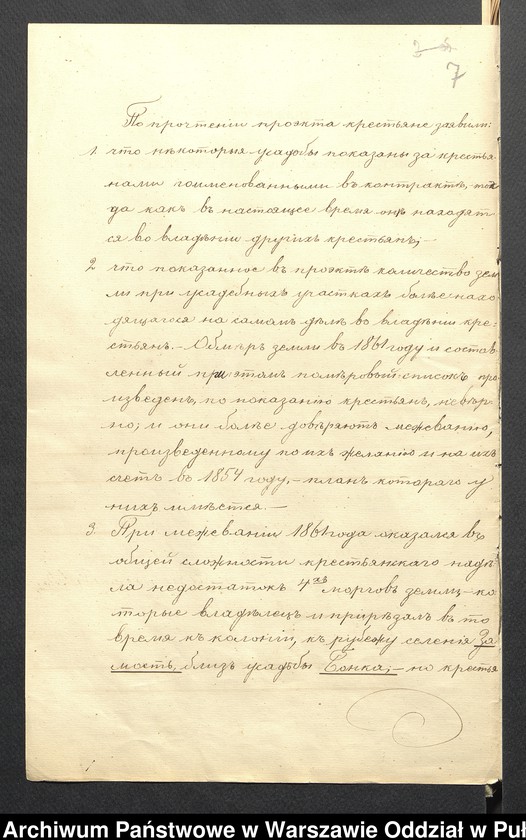 7
По прочтеніи проэкта крестьяне заявили:
1. что нѣкоторыя усадьбы показаны за крестья-
нами поименованными въ контрактѣ, тог-
да какъ въ настоящее время онѣ находят-
ся во владѣніи другихъ крестьянъ;-
2 что показанное въ проэктѣ количество зем-
ли при усадебныхъ участкахъ болѣе нахо-
дящагося на самомъ дѣлѣ во владѣніи кре-
стьянъ. - Обмѣръ земли въ 1861 году и состав-
ленный при этомъ помѣровый списокъ про-
изведенъ, по показанію крестьянъ, невѣр-
но; и они болѣе довѣряютъ межеванію,
произведенному по ихъ желанію и на ихъ
счетъ въ 1854 году, - планъ котораго у
нихъ имѣется. -
3 При межеваніи 1861 года оказался въ
общей сложности крестьянскаго надѣ-
ла недостатокъ 4хъ морговъ земли, ко-
торые владѣлецъ и прирѣзалъ въ то
время къ колоніи, къ рубежу селенія За-
мость, близъ усадьбы Бонка; - но крестья
Archiwum Państwowe w Warszawie Oddział w Puł